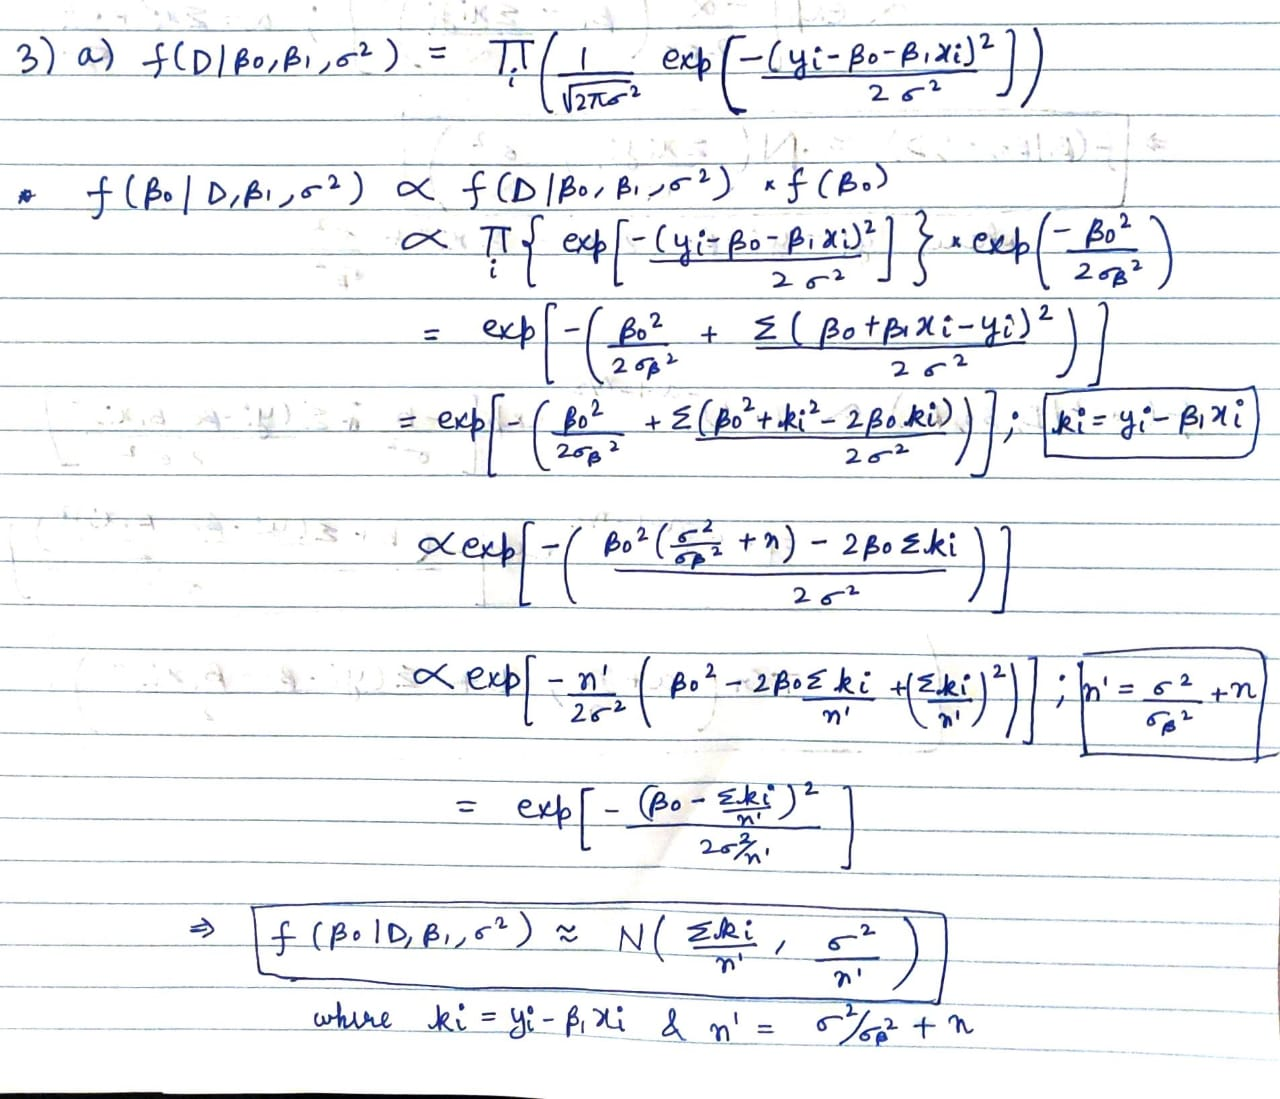 3) a) f(D|β0,β1,σ²) = Π_i ( 1/√2πσ² exp[ -(yi-β0-β1xi)² / 2σ² ] )
* f(β0|D,β1,σ²) ∝ f(D|β0,β1,σ²) * f(β0)
∝ Π_i { exp[ -(yi-β0-β1xi)² / 2σ² ] } * exp( -β0² / 2σβ² )
= exp[ -( β0²/2σβ² + Σ(β0+β1xi-yi)² / 2σ² ) ]
= exp[ -( β0²/2σβ² + Σ(β0²+ki²-2β0ki) / 2σ² ) ] ; ki = yi-β1xi
∝ exp[ -( β0²(σ²/σβ² +n) - 2β0Σki / 2σ² ) ]
∝ exp[ -n'/2σ² ( β0² - 2β0Σki/n' + (Σki/n')² ) ] ; n' = σ²/σβ² +n
= exp[ -(β0 - Σki/n')² / 2σ²/n' ]
⇒ f(β0|D,β1,σ²) ≈ N( Σki/n' , σ²/n' )
where ki = yi-β1xi & n' = σ²/σβ² + n